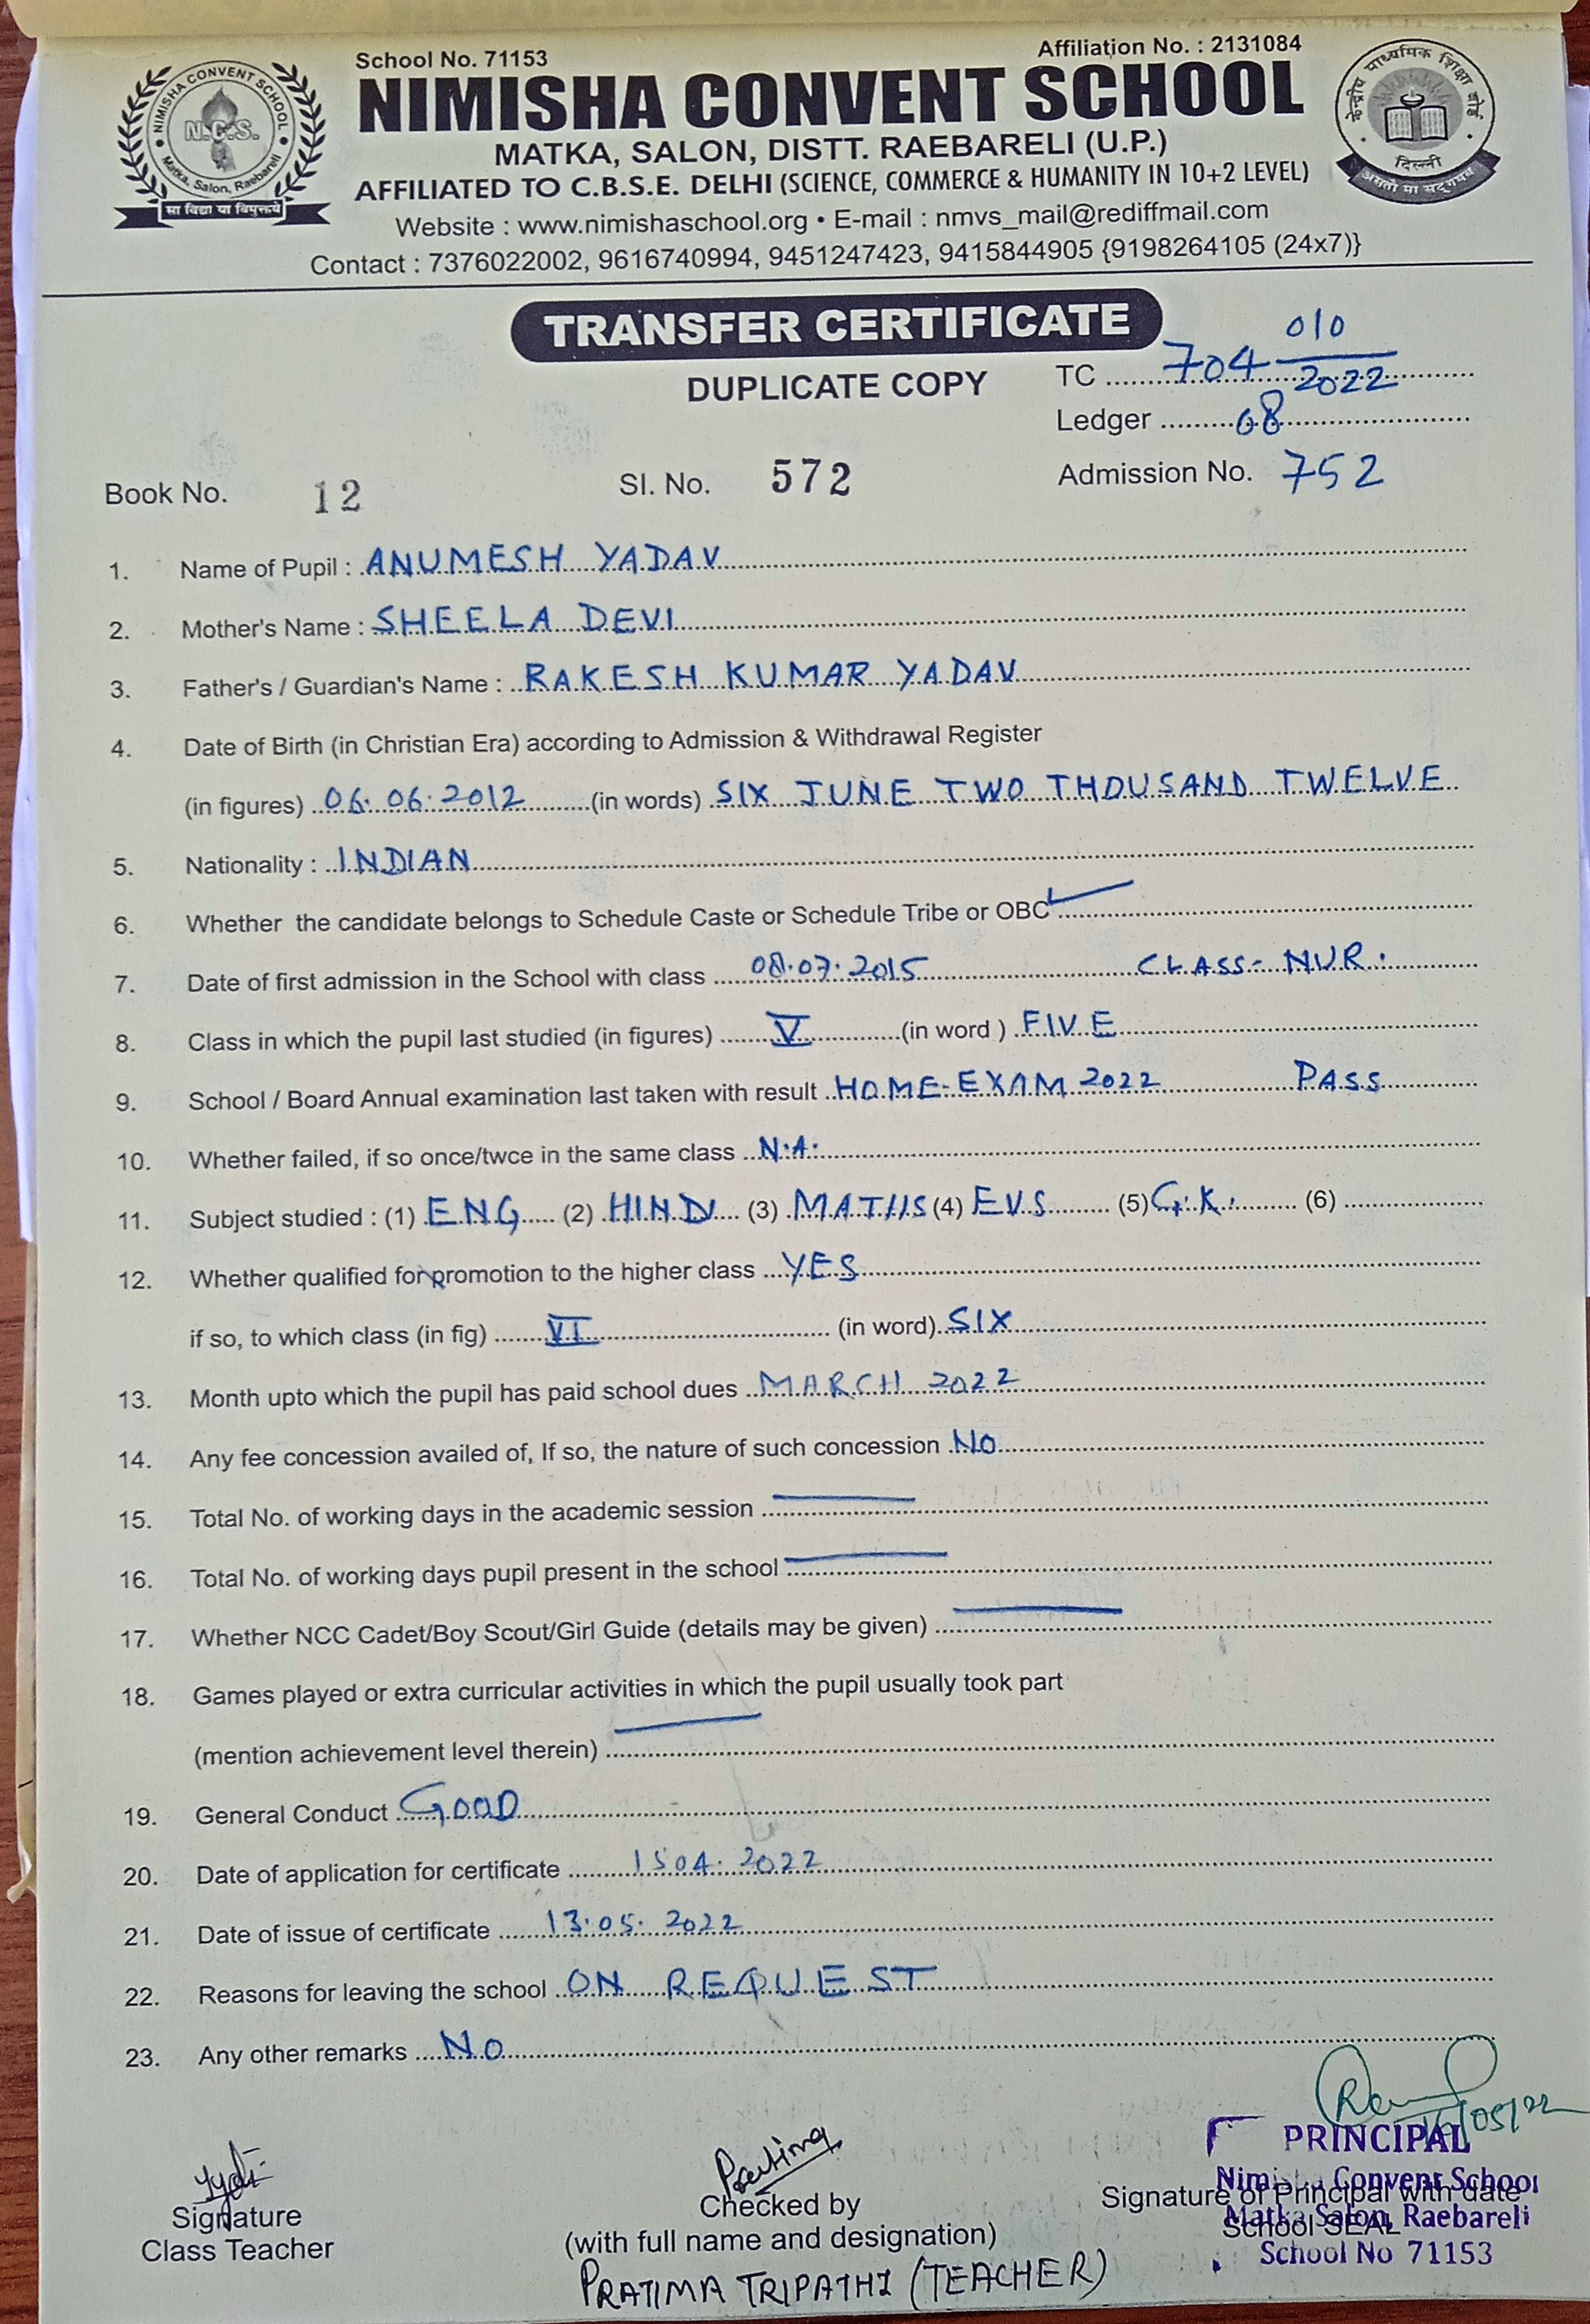 School No. 71153
Affiliation No. : 2131084
NIMISHA CONVENT SCHOOL
NIMISHA CONVENT SCHOOL
N.C.S.
Matka, Salon, Raebareli
सा विद्या या विमुक्तये
केन्द्रीय माध्यमिक शिक्षा बोर्ड
दिल्ली
असतो मा सद्गमय
MATKA, SALON, DISTT. RAEBARELI (U.P.)
AFFILIATED TO C.B.S.E. DELHI (SCIENCE, COMMERCE & HUMANITY IN 10+2 LEVEL)
Website : www.nimishaschool.org • E-mail : nmvs_mail@rediffmail.com
Contact : 7376022002, 9616740994, 9451247423, 9415844905 {9198264105 (24x7)}
TRANSFER CERTIFICATE
DUPLICATE COPY
TC 704 010/2022
Ledger 08
Book No. 12 Sl. No. 572 Admission No. 752
1. Name of Pupil : ANUMESH YADAV
2. Mother's Name : SHEELA DEVI
3. Father's / Guardian's Name : RAKESH KUMAR YADAV
4. Date of Birth (in Christian Era) according to Admission & Withdrawal Register
(in figures) 06.06.2012 (in words) SIX JUNE TWO THOUSAND TWELVE
5. Nationality : INDIAN
6. Whether the candidate belongs to Schedule Caste or Schedule Tribe or OBC ✓
7. Date of first admission in the School with class 08.07.2015 CLASS- NUR.
8. Class in which the pupil last studied (in figures) V (in word ) FIVE
9. School / Board Annual examination last taken with result HOME-EXAM 2022 PASS
10. Whether failed, if so once/twce in the same class N.A.
11. Subject studied : (1) ENG (2) HINDI (3) MATHS (4) EVS (5) G.K. (6)
12. Whether qualified for promotion to the higher class YES
if so, to which class (in fig) VI (in word) SIX
13. Month upto which the pupil has paid school dues MARCH 2022
14. Any fee concession availed of, If so, the nature of such concession NO
15. Total No. of working days in the academic session
16. Total No. of working days pupil present in the school
17. Whether NCC Cadet/Boy Scout/Girl Guide (details may be given)
18. Games played or extra curricular activities in which the pupil usually took part
(mention achievement level therein)
19. General Conduct GOOD
20. Date of application for certificate 15 04. 2022
21. Date of issue of certificate 13.05. 2022
22. Reasons for leaving the school ON REQUEST
23. Any other remarks NO
Jyoti
Signature
Class Teacher
Pratima
Checked by
(with full name and designation)
PRATIMA TRIPATHI (TEACHER)
PRINCIPAL
Nimisha Convent School
Matka Salon, Raebareli
School No 71153
Signature of Principal with date
School SEAL